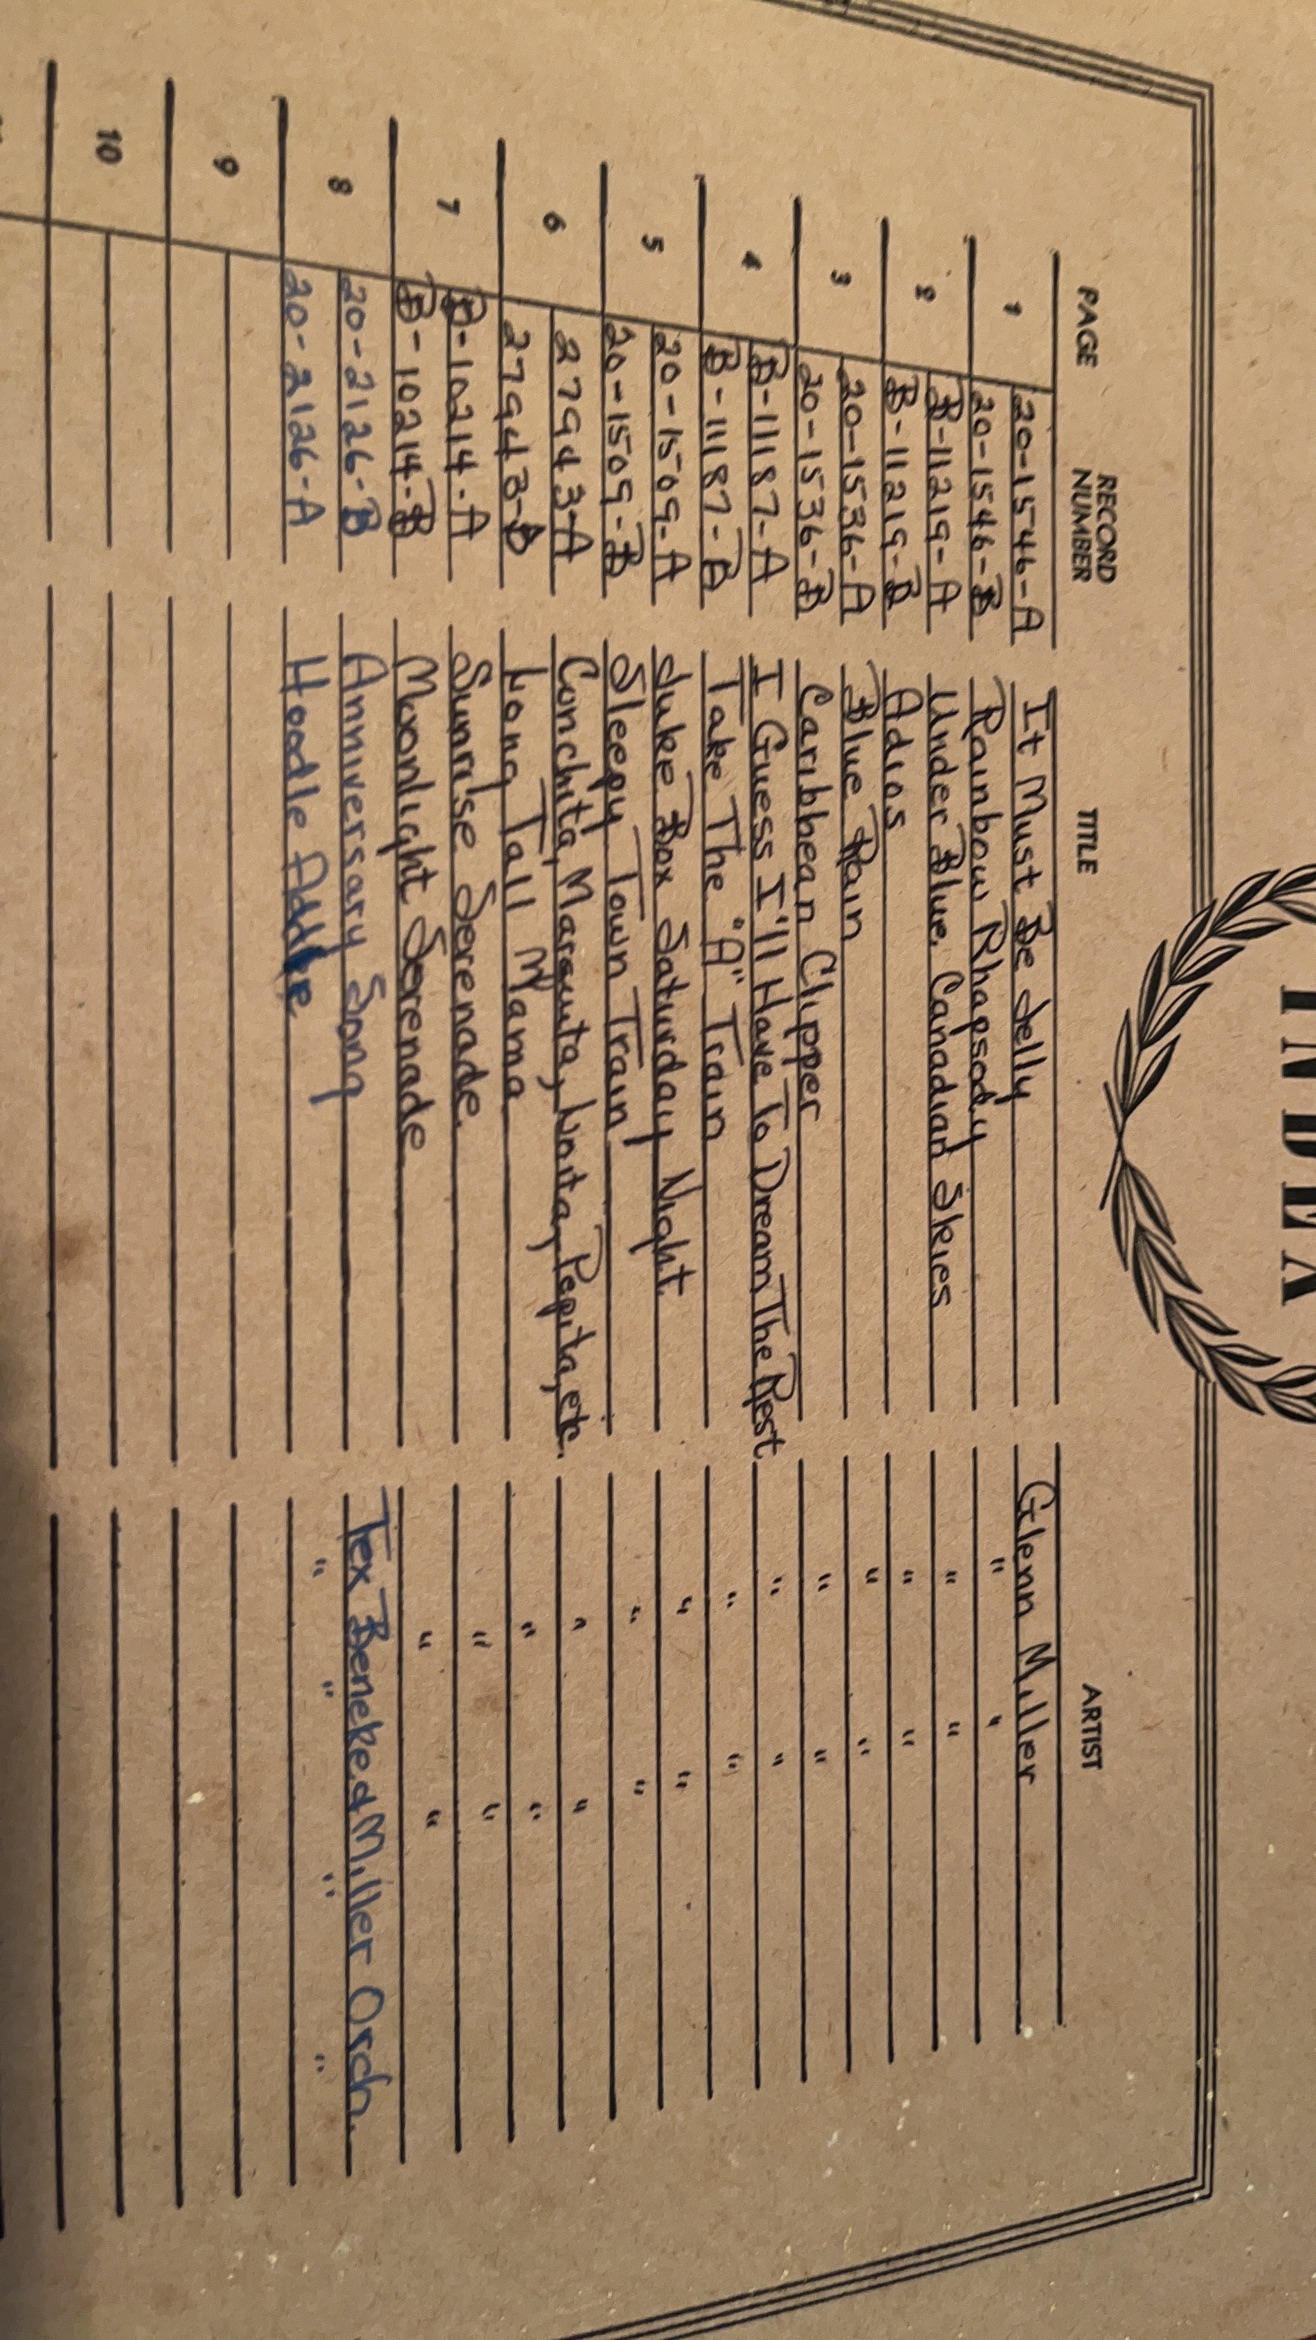 INDEX
PAGE RECORD NUMBER TITLE ARTIST
1 20-1546-A It Must Be Jelly Glenn Miller
20-1546-B Rainbow Rhapsody " "
2 B-11219-A Under Blue Canadian Skies " "
B-11219-B Adios " "
3 20-1536-A Blue Rain " "
20-1536-B Caribbean Clipper " "
4 B-11187-A I Guess I'll Have To Dream The Rest " "
B-11187-B Take The "A" Train " "
5 20-1509-A Juke Box Saturday Night " "
20-1509-B Sleepy Town Train " "
6 27943-A Conchita, Marquita, Lolita, Pepita, etc. " "
27943-B Long Tall Mama " "
7 B-10214-A Sunrise Serenade " "
B-10214-B Moonlight Serenade " "
8 20-2126-B Anniversary Song Tex Beneke & Miller Orch.
20-2126-A Hoodle Addle " " " "
9
10